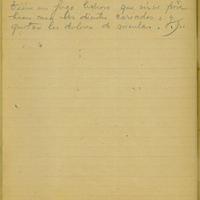 Tiene un jugo lechoso que sirve pa
hacer caer los dientes cariados, y
quitar los dolores de muelas.